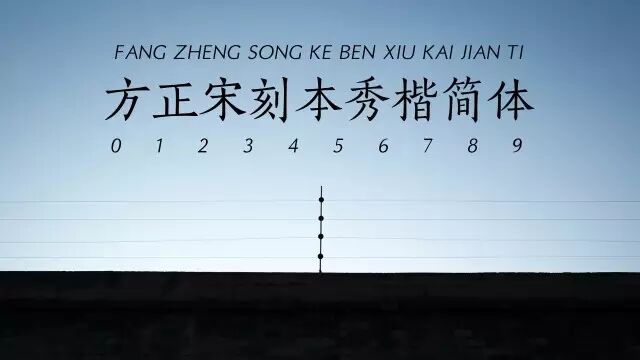 FANG ZHENG SONG KE BEN XIU KAI JIAN TI
方正宋刻本秀楷简体
0 1 2 3 4 5 6 7 8 9